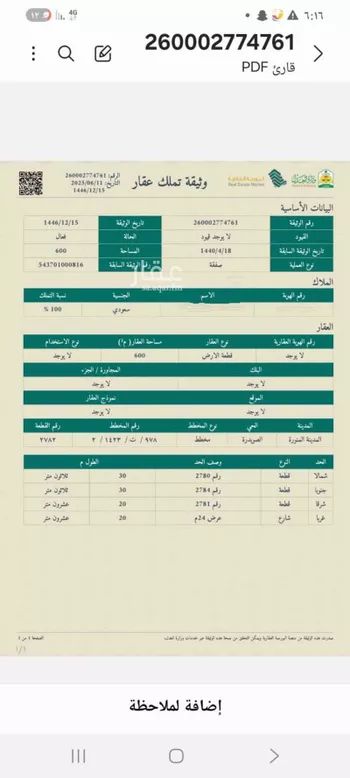 ٦:١٦
4G
١٢
260002774761
قارئ PDF
وثيقة تملك عقار
الرقم: 260002774761
التاريخ: 2025/06/11
1446/12/15
البورصة العقارية
Real Estate Market
وزارة العدل
البيانات الأساسية
رقم الوثيقة 260002774761 تاريخ الوثيقة 1446/12/15
القيود لا يوجد قيود الحالة فعال
تاريخ الوثيقة السابقة 1440/4/18 المساحة 600
نوع العملية صفقة رقم الوثيقة السابقة 543701000816
عقار
sa.aqar.fm
الملاك
رقم الهوية الاسم الجنسية نسبة التملك
سعودي 100 %
العقار
رقم الهوية العقارية نوع العقار مساحة العقار( م٢) نوع الاستخدام
لا يوجد قطعة الارض 600 لا يوجد
البنك المجاورة / الجزء
لا يوجد لا يوجد
الموقع نموذج العقار
لا يوجد لا يوجد
المدينة الحي نوع المخطط رقم المخطط رقم القطعة
المدينة المنورة الصويدرة مخطط ٩٧٨ / ت / ١٤٢٣ / ٢ ٢٧٨٢
الحد النوع وصف الحد الطول م
شمالا قطعة رقم 2780 30 ثلاثون متر
جنوبا قطعة رقم 2784 30 ثلاثون متر
شرقا قطعة رقم 2781 20 عشرون متر
غربا شارع عرض 24م 20 عشرون متر
صدرت هذه الوثيقة من منصة البورصة العقارية ويمكن التحقق من صحة هذه الوثيقة عبر خدمات وزارة العدل
الصفحة 1 من 1
١/١
إضافة لملاحظة